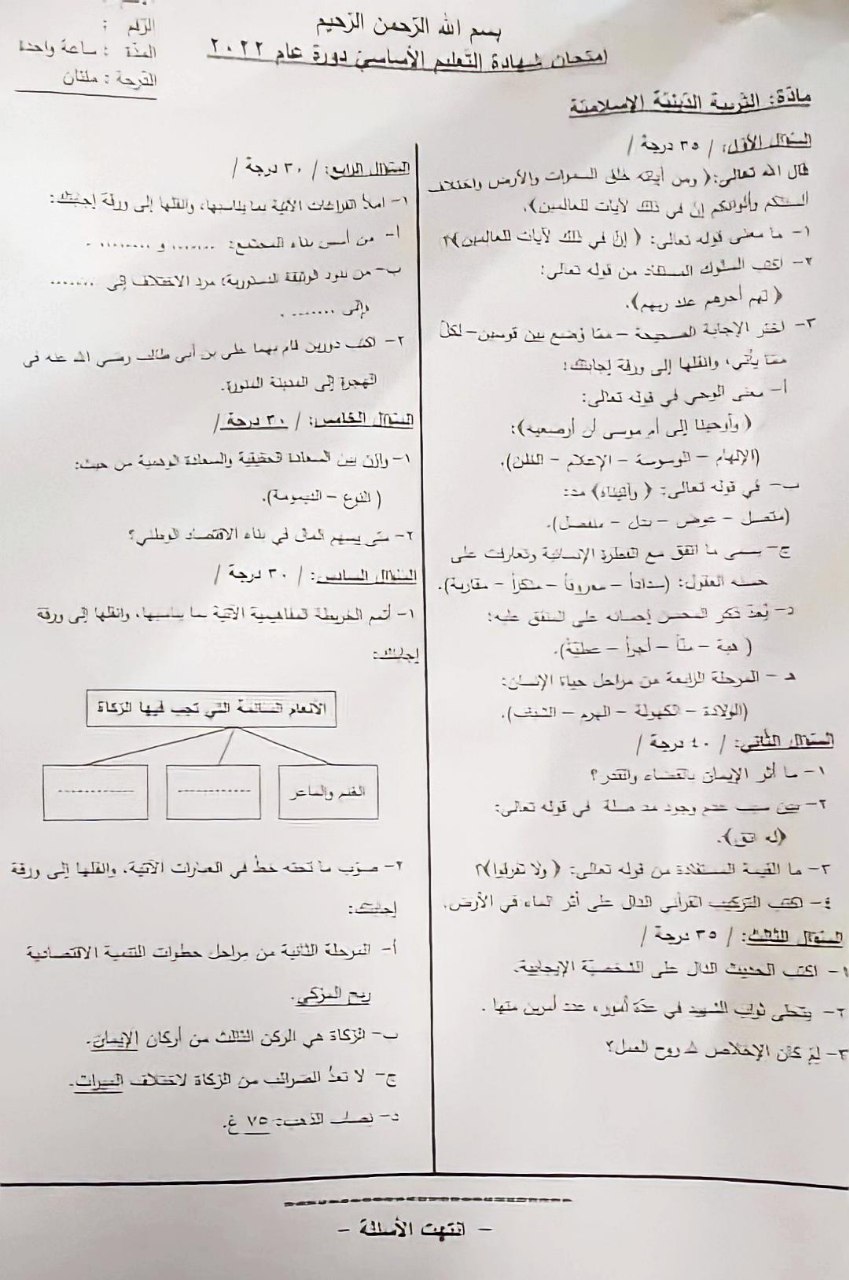 بسم الله الرّحمن الرّحيم
امتحان شهادة التّعليم الأساسيّ دورة عام ٢٠٢٢
الرّقم :
المدّة : ساعة واحدة
الدّرجة : مئتان
مادّة: التّربية الدّينيّة الإسلاميّة
السّؤال الأوّل: / ٣٥ درجة /
قال الله تعالى: ﴿ ومن آياته خلق السموات والأرض واختلاف
ألسنتكم وألوانكم إنّ في ذلك لآيات للعالمين﴾.
١- ما معنى قوله تعالى: ﴿ إنّ في ذلك لآيات للعالمين﴾؟
٢- اكتب السّلوك المستفاد من قوله تعالى:
﴿ لهم أجرهم عند ربهم﴾.
٣- اختر الإجابة الصحيحة – ممّا وُضع بين قوسين – لكلّ
ممّا يأتي، وانقلها إلى ورقة إجابتك:
أ- معنى الوحي في قوله تعالى:
﴿ وأوحينا إلى أم موسى أن أرضعيه﴾:
(الإلهام – الوسوسة – الإعلام – الظن).
ب- في قوله تعالى: ﴿ وآتيناه﴾ مد:
(متصل – عوض – بدل – منفصل).
ج- يسمى ما اتفق مع الفطرة الإنسانية وتعارفت على
حسنه العقول: (سداداً – معروفاً – منكراً – مقاربة).
د- يُعدّ ذكر المحسن إحسانه على المنفق عليه:
( هبة – منّاً – أجراً – عطيّة).
هـ - المرحلة الرّابعة من مراحل حياة الإنسان:
(الولادة – الكهولة – الهرم – الضعف).
السّؤال الثّاني: / ٤٠ درجة /
١- ما أثر الإيمان بالقضاء والقدر؟
٢- بيّن سبب عدم وجود مد صلة في قوله تعالى:
﴿له اتق﴾.
٣- ما القيمة المستفادة من قوله تعالى: ﴿ ولا تفرقوا﴾؟
٤- اكتب التركيب القرآني الدال على أثر الماء في الأرض.
السّؤال الثالث: / ٣٥ درجة /
١- اكتب الحديث الدال على الشخصيّة الإيجابية.
٢- يتجلى ثواب الشهيد في عدّة أمور، عدد أمرين منها .
٣- لِمَ كان الإخلاص روح العمل؟
السّؤال الرابع: / ٣٠ درجة /
١- املأ الفراغات الآتية بما يناسبها، وانقلها إلى ورقة إجابتك:
أ- من أسس بناء المجتمع: ....... و ........ .
ب- من بنود الوثيقة الدستورية؛ مرد الاختلاف إلى .......
وإلى ....... .
٢- اكتب دورين قام بهما علي بن أبي طالب رضي الله عنه في
الهجرة إلى المدينة المنورة.
السّؤال الخامس: / ٣٠ درجة /
١- وازن بين السعادة الحقيقية والسعادة الوهمية من حيث:
( النوع – الديمومة).
٢- متى يسهم المال في بناء الاقتصاد الوطني؟
السّؤال السادس: / ٣٠ درجة /
١- أتمم الخريطة المفاهيمية الآتية بما يناسبها، وانقلها إلى ورقة
إجابتك:
الأنعام السائمة التي تجب فيها الزكاة
الغنم والماعز
----------
----------
٢- صوّب ما تحته خطّ في العبارات الآتية، وانقلها إلى ورقة
إجابتك:
أ- المرحلة الثانية من مراحل خطوات التنمية الاقتصادية
ربح المزكي.
ب- الزكاة هي الركن الثالث من أركان الإيمان.
ج- لا تعدّ الضرائب من الزكاة لاختلاف الميراث.
د- نصاب الذهب: ٧٥ غ.
- انتهت الأسئلة -